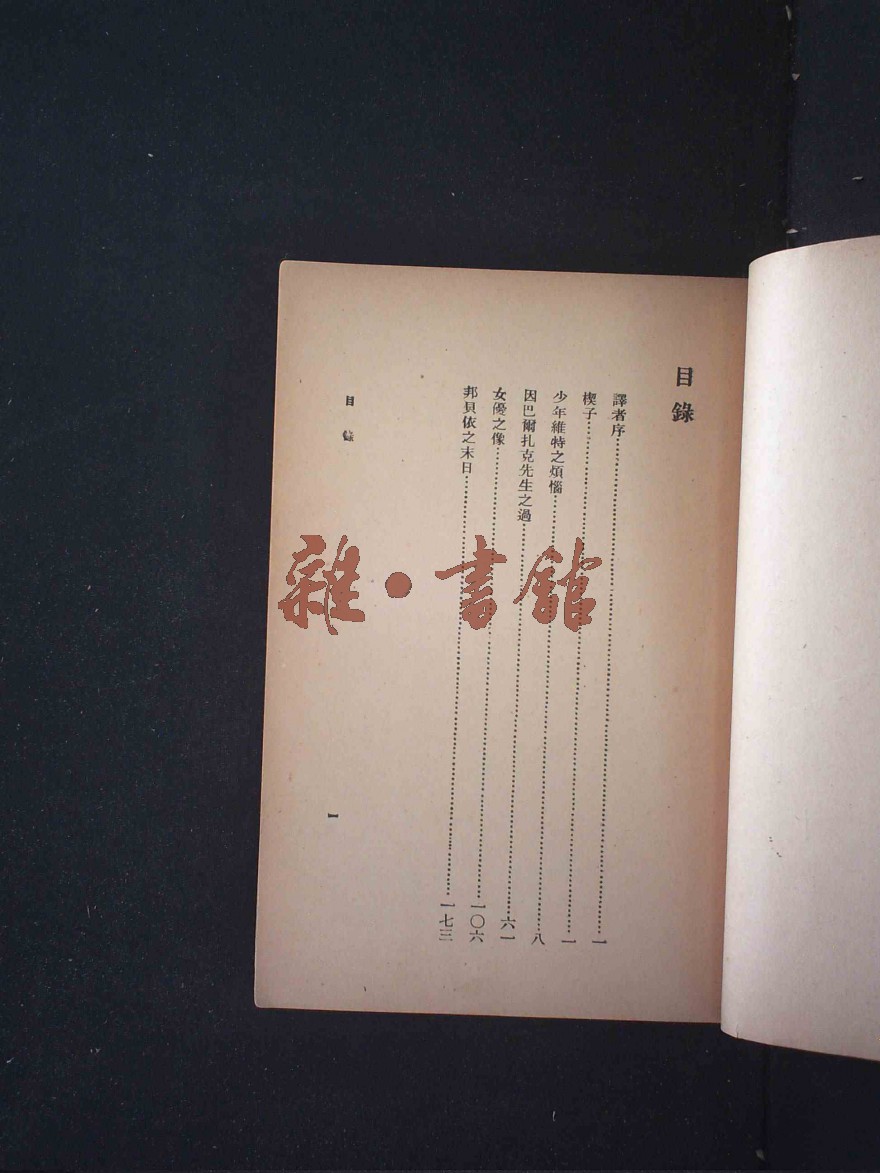 目錄
譯者序……一
楔子……一
少年維特之煩惱……八
因巴爾扎克先生之過……六一
女優之像……一〇六
邦貝依之末日……一七三
目錄
一
雜·書館